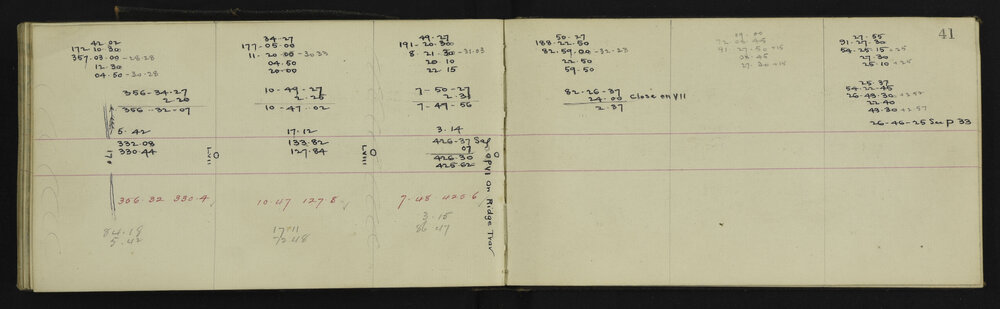 41
42.02
172.10.30
357.03.00 - 28.28
12.30
04.50 - 30.28
356-34-27
2.20
356-32-07
5.42
332.08
330.44
170
LVII
356.32 330.4
84.18
5.42
34-27
177-05-00
11-20.00 - 30.33
04.50
20-00
10-49-27
2.25
10-47.02
17.12
133.82
127.84
LVIII
10.47 127.8
17.11
49-27
191-20-30
8.21.30 - 31.03
20 10
22 15
7-50-27
2.30
7-47-56
3.14
426-37 Sag
07
426.30
425.62
OPVI on Ridge Trav
7.48 425.6
3.15
86 47
50-27
188-22-50
82.59.00 - 32-23
22.50
59.50
82-26-37
24.00 Close on VII
2.37
19-00
08.45
27.30 + 15
27-55
91-27-30
54-25-15 + 25
27-30
25-10 + 25
25-37
54-22-45
26-49-30 + 2.52
22-40
49.30 + 2.57
26-46-25 See p 33